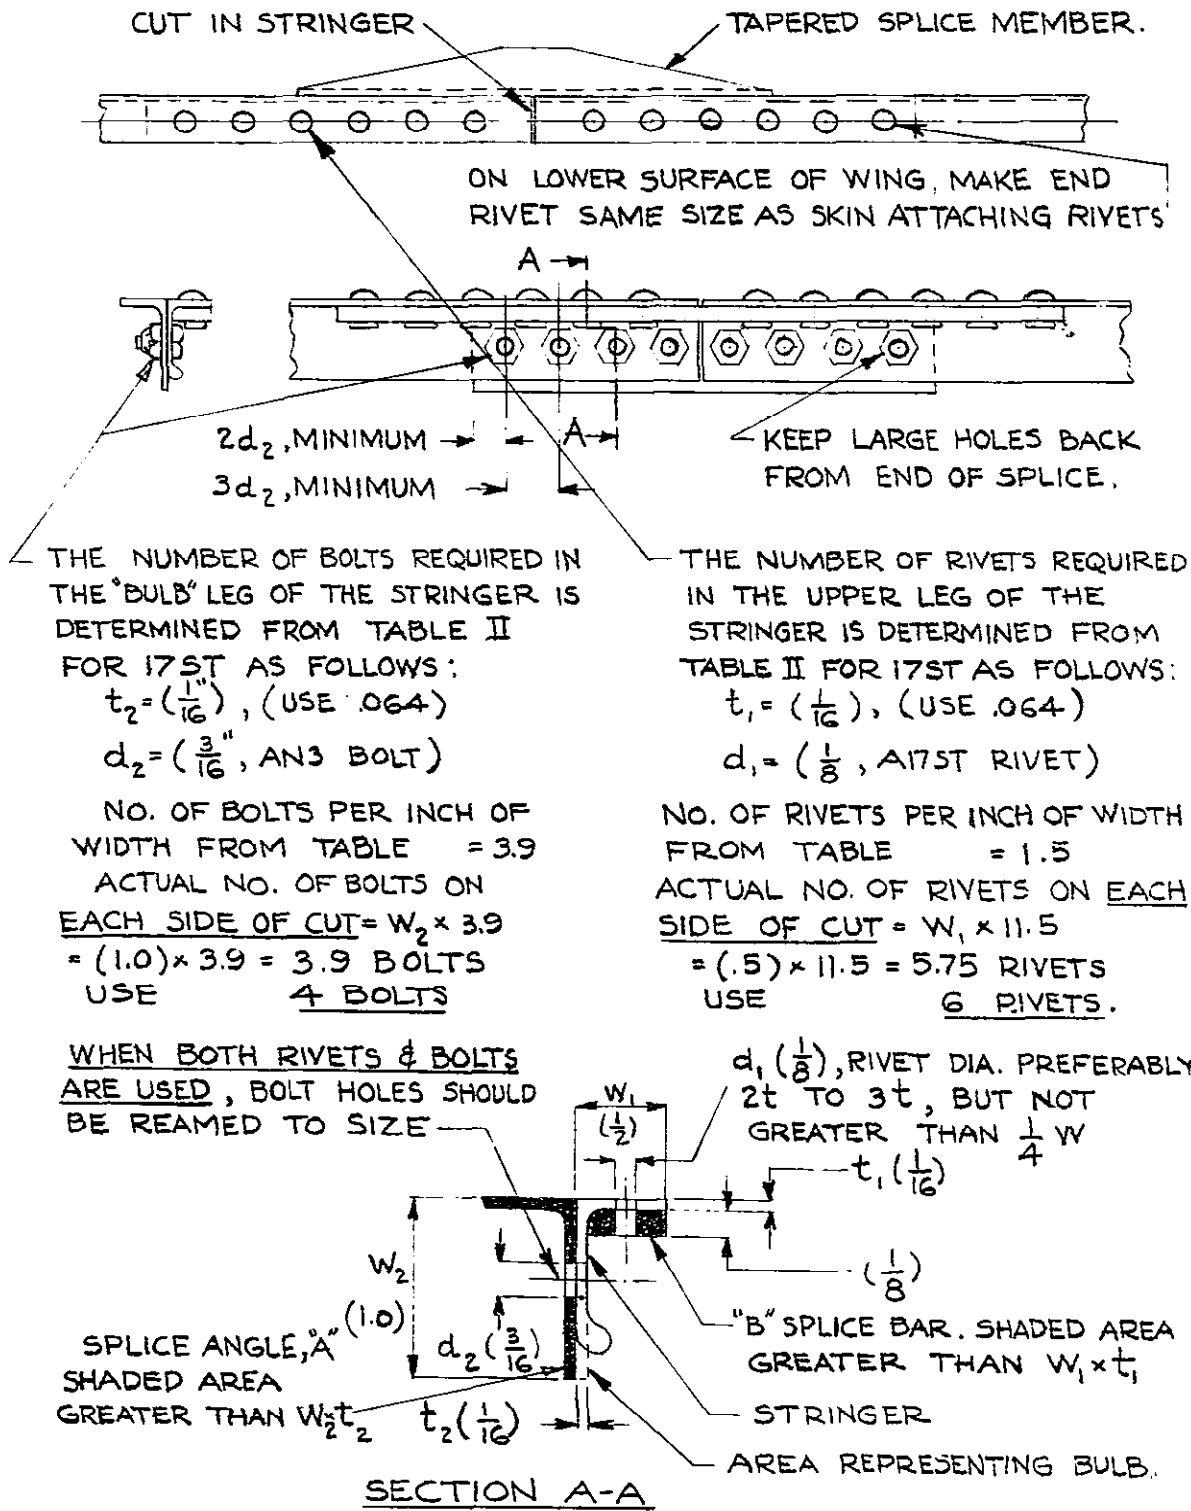 CUT IN STRINGER
TAPERED SPLICE MEMBER.
ON LOWER SURFACE OF WING, MAKE END
RIVET SAME SIZE AS SKIN ATTACHING RIVETS
A
2d₂, MINIMUM
A
3d₂, MINIMUM
KEEP LARGE HOLES BACK
FROM END OF SPLICE.
THE NUMBER OF BOLTS REQUIRED IN
THE "BULB" LEG OF THE STRINGER IS
DETERMINED FROM TABLE II
FOR 17ST AS FOLLOWS:
t₂=(1/16"), (USE .064)
d₂=(3/16", AN3 BOLT)
NO. OF BOLTS PER INCH OF
WIDTH FROM TABLE = 3.9
ACTUAL NO. OF BOLTS ON
EACH SIDE OF CUT = W₂ × 3.9
= (1.0) × 3.9 = 3.9 BOLTS
USE 4 BOLTS
THE NUMBER OF RIVETS REQUIRED
IN THE UPPER LEG OF THE
STRINGER IS DETERMINED FROM
TABLE II FOR 17ST AS FOLLOWS:
t₁=(1/16), (USE .064)
d₁=(1/8, A17ST RIVET)
NO. OF RIVETS PER INCH OF WIDTH
FROM TABLE = 1.5
ACTUAL NO. OF RIVETS ON EACH
SIDE OF CUT = W₁ × 11.5
= (.5) × 11.5 = 5.75 RIVETS
USE 6 RIVETS.
WHEN BOTH RIVETS & BOLTS
ARE USED, BOLT HOLES SHOULD
BE REAMED TO SIZE
W₁
(1/2)
d₁ (1/8), RIVET DIA. PREFERABLY
2t TO 3t, BUT NOT
GREATER THAN 1/4 W
t₁ (1/16)
(1/8)
W₂
(1.0)
d₂ (3/16)
t₂ (1/16)
SPLICE ANGLE, "A"
SHADED AREA
GREATER THAN W₂t₂
"B" SPLICE BAR. SHADED AREA
GREATER THAN W₁×t₁
STRINGER
AREA REPRESENTING BULB.
SECTION A-A